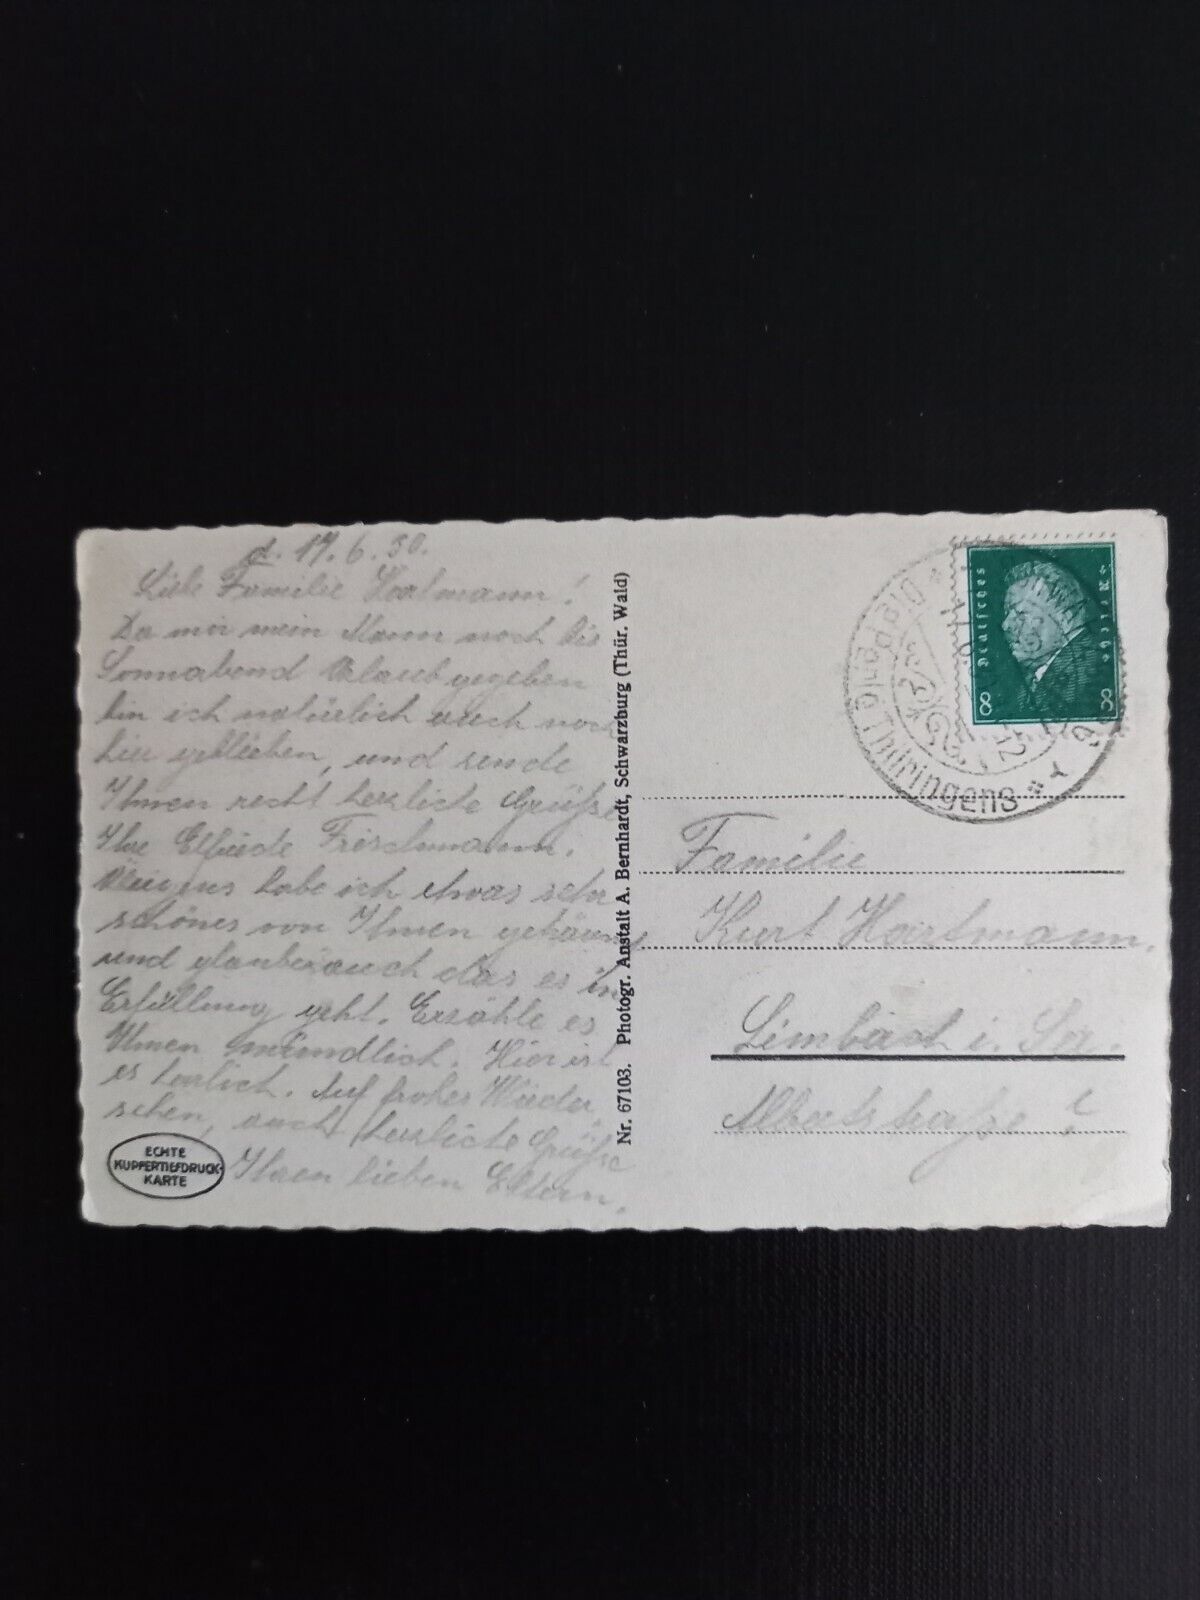 d. 17.6.30.
Liebe Familie Hartmann!
Da mir mein Mann noch bis
Sonnabend Urlaub gegeben
bin ich natürlich auch noch
hier geblieben, und sende
Ihnen recht herzliche Grüße
Ihre Elfriede Frischmann.
Übrigens habe ich etwas sehr
schönes von Ihnen
und glaube auch das es in
Erfüllung geht. Erzähle es
Ihnen mündlich. Hier ist
es herlich. Auf frohes Wieder
sehen, auch herzliche Grüße
Ihren lieben Eltern.
ECHTE
KUPFERTIEFDRUCK-
KARTE
Nr. 67103. Photogr. Anstalt A. Bernhardt, Schwarzburg (Thür. Wald)
Deutsches Reich
8 8
Thüringens
Familie
Kurt Hartmann.
Limbach i. Sa.
Albertstraße